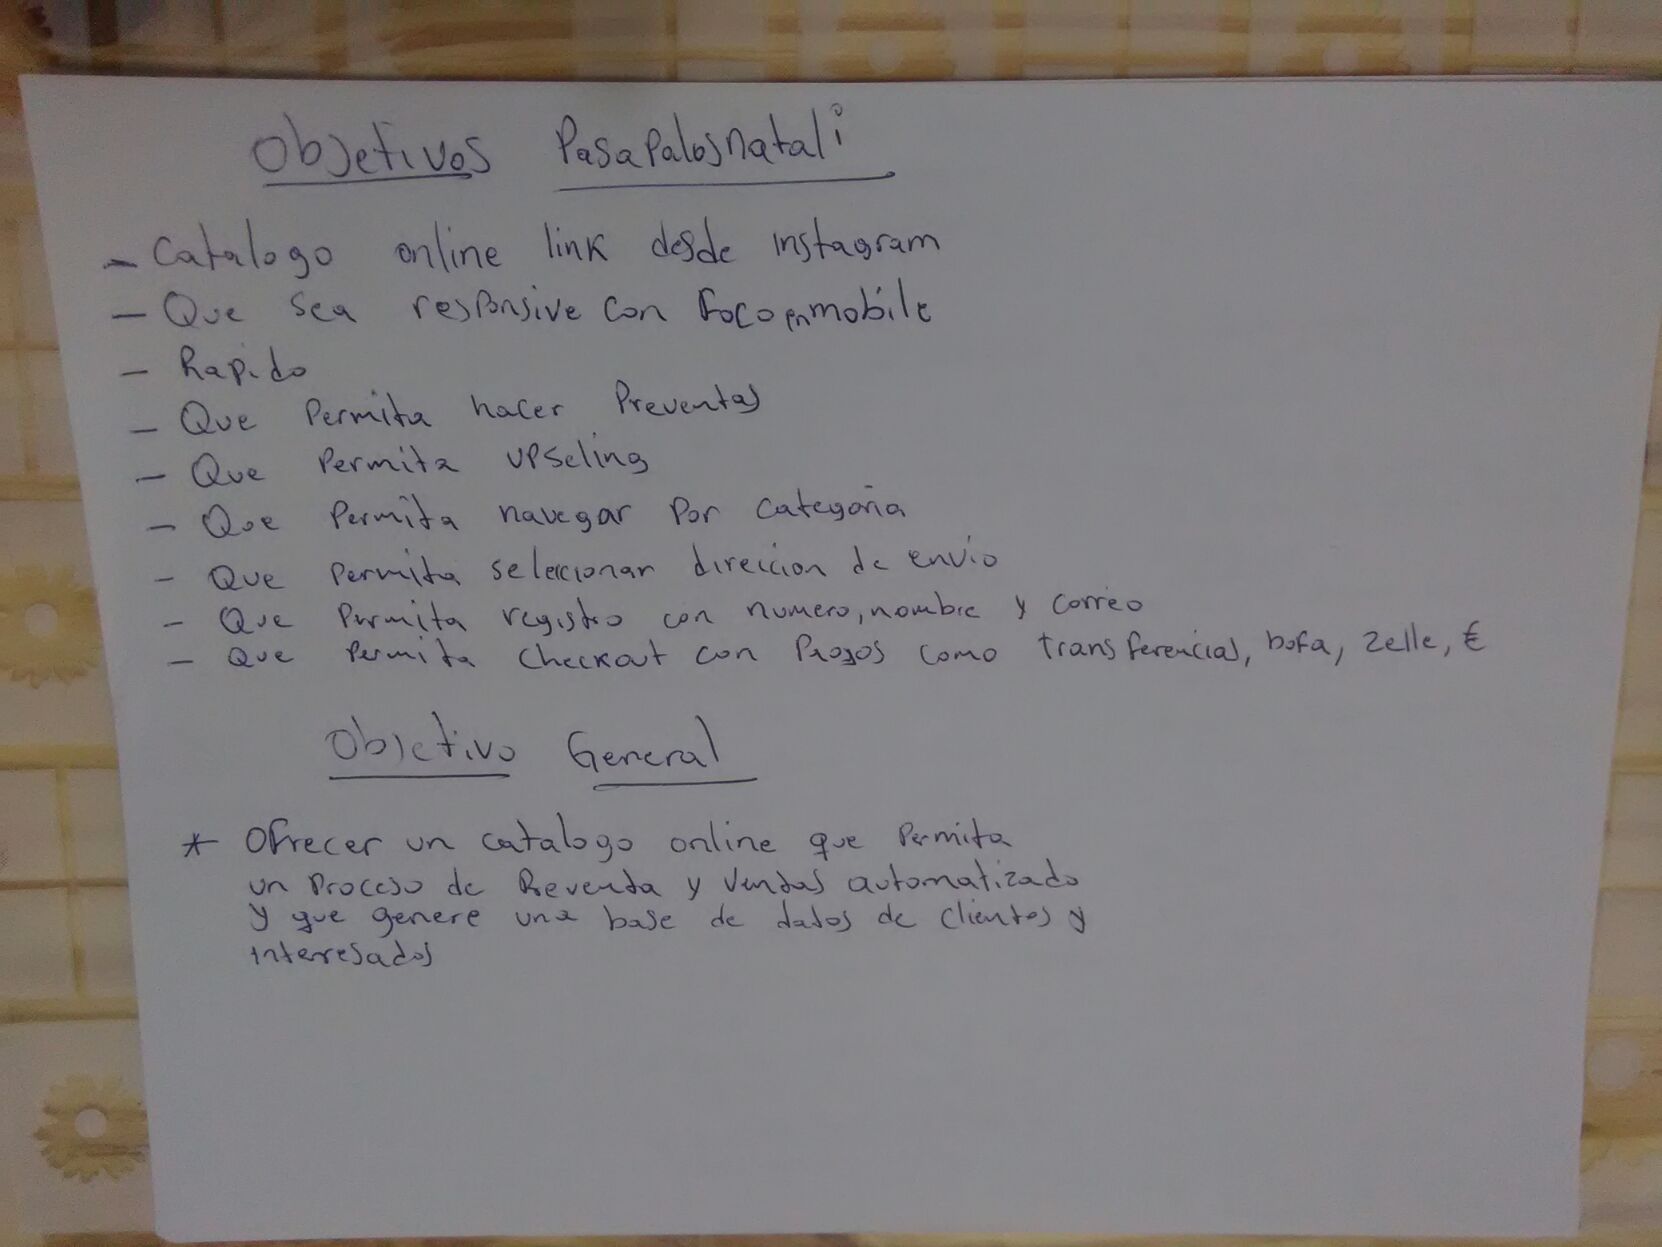 Objetivos Pasapalosnatali
- Catalogo online link desde instagram
- Que sea responsive con foco en mobile
- Rapido
- Que Permita hacer Preventas
- Que Permita upseling
- Que Permita navegar por categoria
- Que Permita seleccionar direccion de envio
- Que Permita registro con numero, nombre y correo
- Que Permita checkout con Pagos como transferencias, bofa, zelle, €
Objetivo General
* Ofrecer un catalogo online que Permita
un Proceso de Preventa y Ventas automatizado
y que genere una base de datos de clientes y
interesados